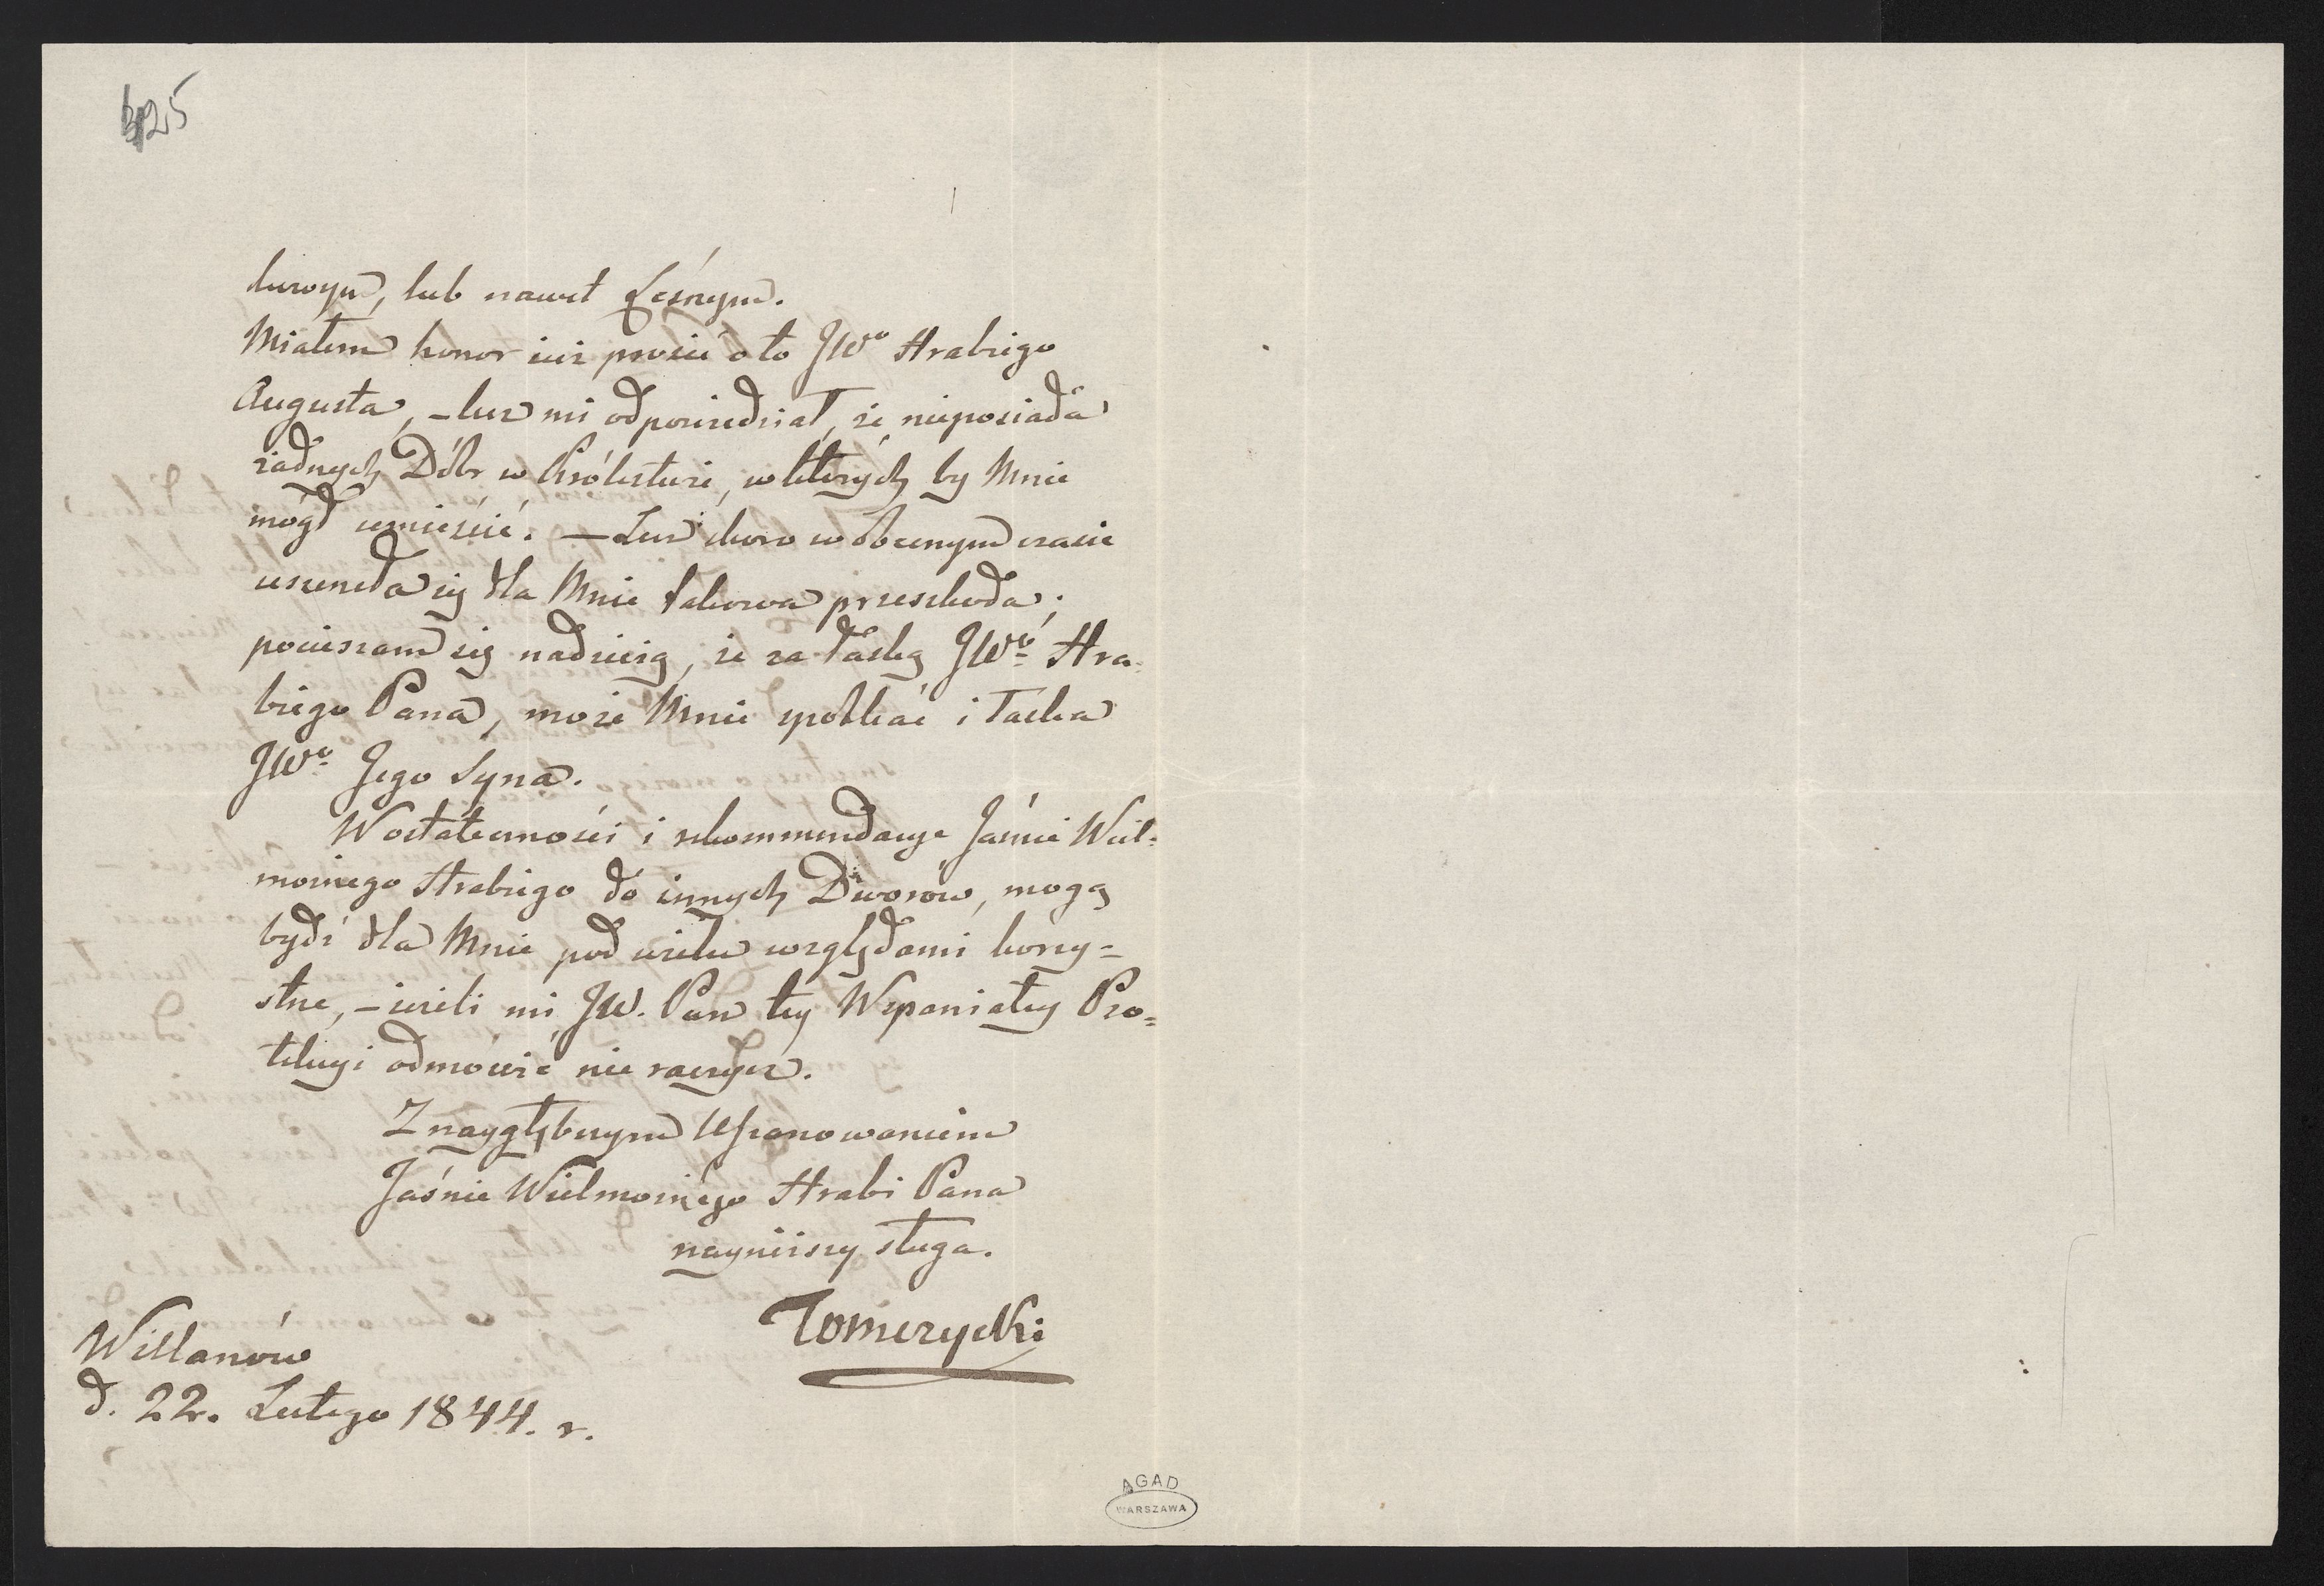 325
kowym, lub nawet Leśnym.
Miałem honor iuż prosić o to JWo Hrabiego
Augusta, – lecz mi odpowiedział, że nieposiada
żadnych Dóbr w Królestwie, w których by Mnie
mógł umieścić. – Lecz skoro w obecnym czasie
usuneła się dla Mnie takowa przeszkoda;
pocieszam się nadzieią, że za łaską JWo Hra-
biego Pana, może Mnie spotkać i łaska
JWo Jego Syna.
W ostateczności i rekommendacye Jaśnie Wiel=
możnego Hrabiego do innych Dworów, mogą
bydź dla Mnie pod wielu względami korzy=
stne, – ieżeli mi JW. Pan tey Wspaniałey Pro=
tekcyi odmówić nie raczysz.
Z naygłębszym Uszanowaniem
Jaśnie Wielmożnego Hrabi Pana
nayniższy sługa.
Tomczycki
Willanów
d. 22. Lutego 1844. r.
AGAD
WARSZAWA